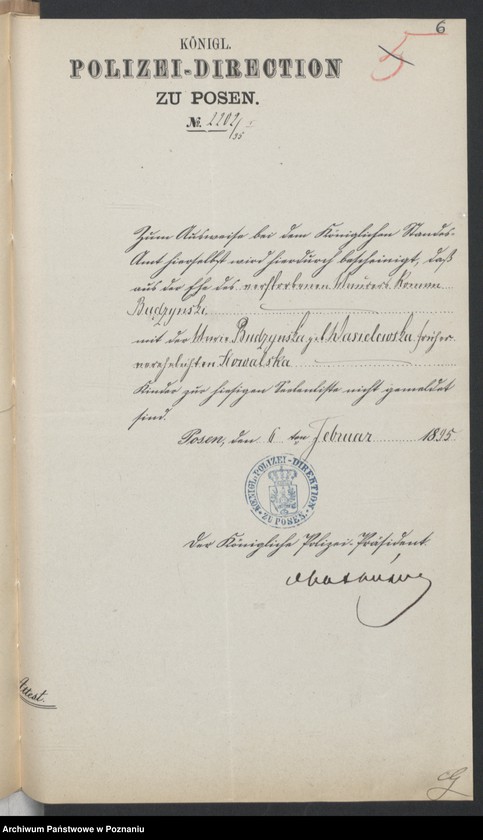 6
5
KÖNIGL.
POLIZEI-DIRECTION
ZU POSEN.
№. 2202/95
Zum Ausweise bei dem Königlichen Standes-
Amt hierselbst wird hierdurch bescheinigt, daß
aus der Ehe des verstorbenen Maurers Roman
Budzynski
mit der Marie Budzynska geb. Wasielewska früher
verehelichten Kowalska
Kinder zur hiesigen Seelenliste nicht gemeldet
sind.
Posen, den 6 ten Februar 1895.
KÖNIGL. POLIZEI-DIREKTION
ZU POSEN.
Der Königliche Polizei-Präsident.
Attest.
Archiwum Państwowe w Poznaniu